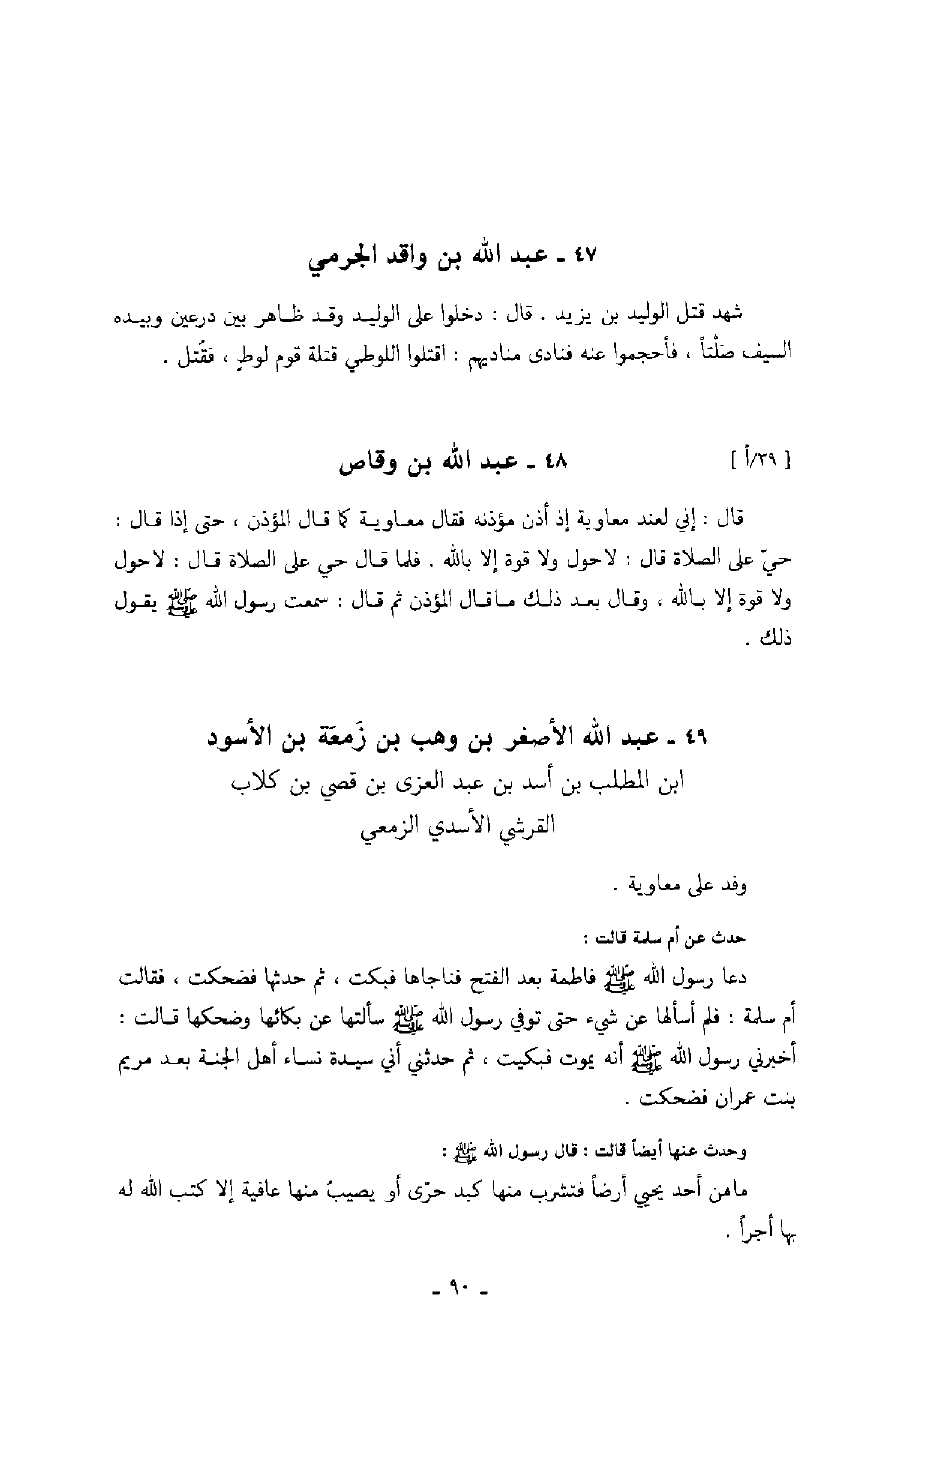 ٤٧ ـ عبد الله بن واقد الجرمي
شهد قتل الوليد بن يزيد . قال : دخلوا على الوليد وقد ظاهر بين درعين وبيده
السيف صَلْتاً ، فأحجموا عنه فنادى مناديهم : اقتلوا اللوطي قتلة قوم لوطٍ ، فقُتل .
[ ٣٩/أ ]
٤٨ ـ عبد الله بن وقاص
قال : إني لعند معاوية إذ أذن مؤذنه فقال معاوية كما قال المؤذن ، حتى إذا قال :
حيّ على الصلاة قال : لاحول ولا قوة إلا بالله . فلما قال حي على الصلاة قال : لاحول
ولا قوة إلا بالله ، وقال بعد ذلك ماقال المؤذن ثم قال : سمعت رسول الله ﷺ يقول
ذلك .
٤٩ ـ عبد الله الأصغر بن وهب بن زَمعَة بن الأسود
ابن المطلب بن أسد بن عبد العزى بن قصي بن كلاب
القرشي الأسدي الزمعي
وفد على معاوية .
حدث عن أم سلمة قالت :
دعا رسول الله ﷺ فاطمة بعد الفتح فناجاها فبكت ، ثم حدثها فضحكت ، فقالت
أم سلمة : فلم أسألها عن شيء حتى توفي رسول الله ﷺ سألتها عن بكائها وضحكها قالت :
أخبرني رسول الله ﷺ أنه يموت فبكيت ، ثم حدثني أني سيدة نساء أهل الجنة بعد مريم
بنت عمران فضحكت .
وحدث عنها أيضاً قالت : قال رسول الله ﷺ :
مامن أحد يحيي أرضاً فتشرب منها كبد حرّى أو يصيبُ منها عافية إلا كتب الله له
بها أجراً .
ـ ٩٠ ـ